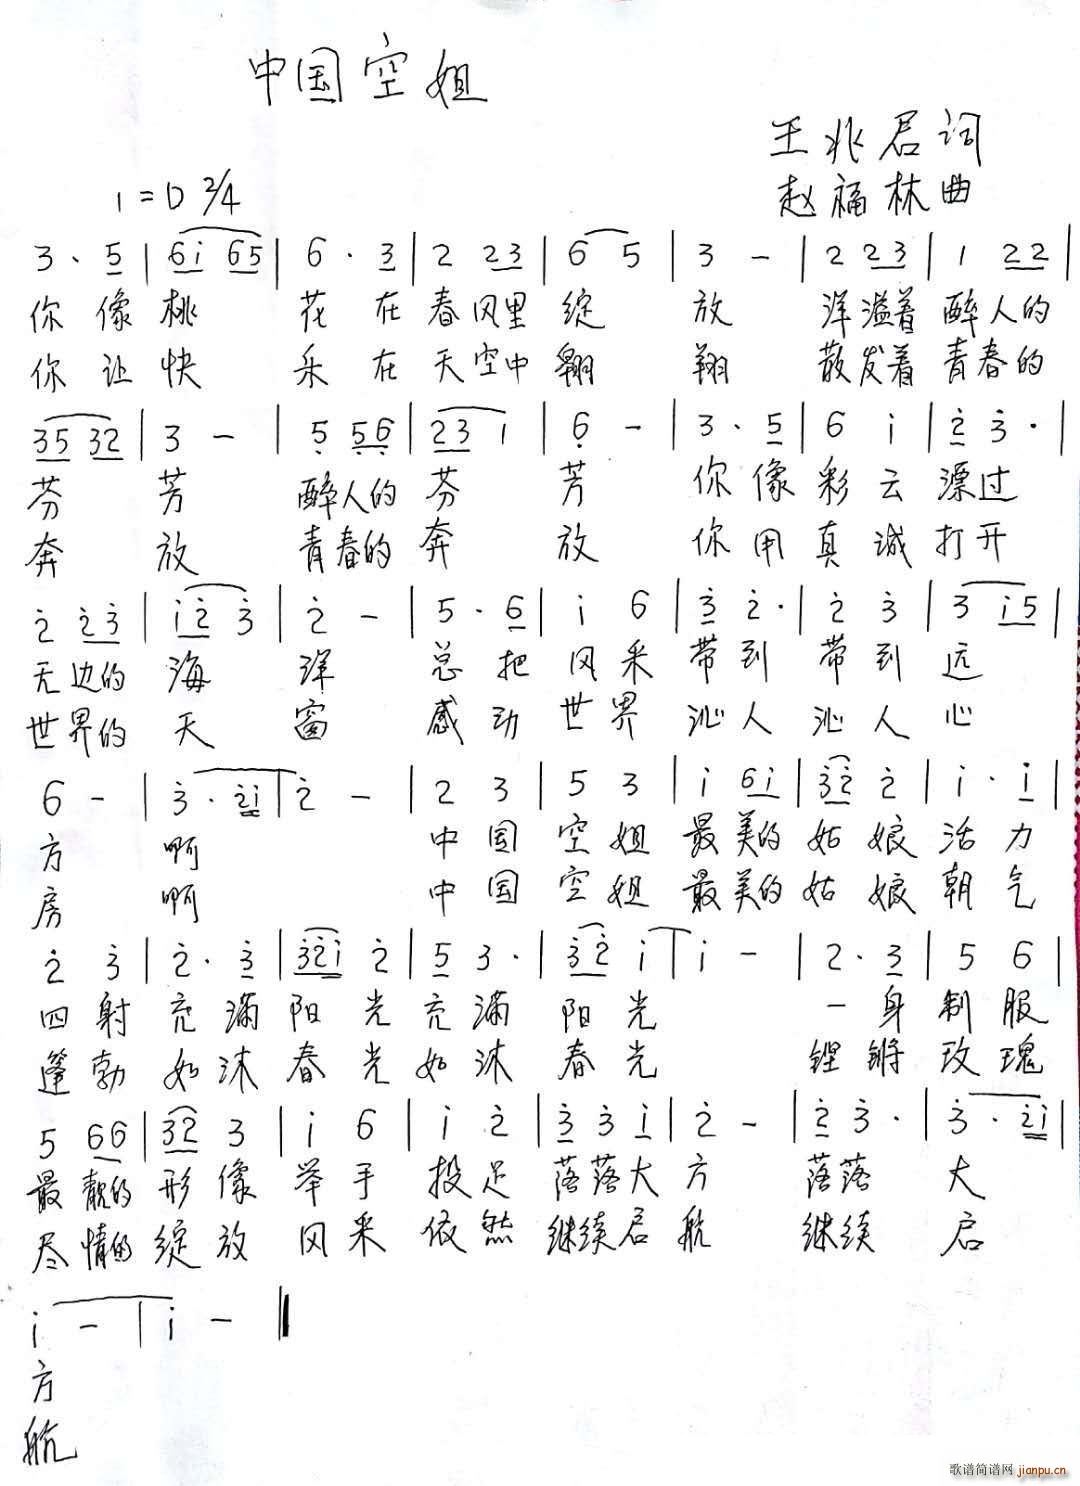 中国空姐
王兆君词
1=D 2/4
赵福林曲
3 · 5 | 6i 65 | 6 · 3 | 2 23 | 6 5 | 3 - | 2 23 | 1 22 |
你像桃 花在春风里绽 放 洋溢着醉人的
你让快 乐在天空中翱 翔 散发着青春的
35 32 | 3 - | 5 56 | 23 1 | 6 - | 3 · 5 | 6 i | 2 3 · |
芬 芳 醉人的芬 芳 你像彩云漂过
奔 放 青春的奔 放 你用真诚打开
2 23 | i2 3 | 2 - | 5 · 6 | i 6 | 3 2 · | 2 3 | 3 i5 |
无边的海 洋 总把风采带到带到远
世界的天 窗 感动世界沁人沁人心
6 - | 3 · 2i | 2 - | 2 3 | 5 3 | i 6i | 32 2 | i · i |
方 啊 中国空姐最美的姑娘活力
房 啊 中国空姐最美的姑娘朝气
2 3 | 2 · 3 | 32i 2 | 5 3 · | 32 i | i - | 2 · 3 | 5 6 |
四射充满阳光充满阳光 一身制服
蓬勃如沐春光如沐春光 铿锵玫瑰
5 66 | 32 3 | i 6 | i 2 | 3 3 i | 2 - | 2 3 · | 3 · 2i |
最靓的形像举手投足落落大方 落落 大
尽情的绽放风采依然继续启航 继续 启
i - | i - ‖
方
航
歌谱简谱网 jianpu.cn